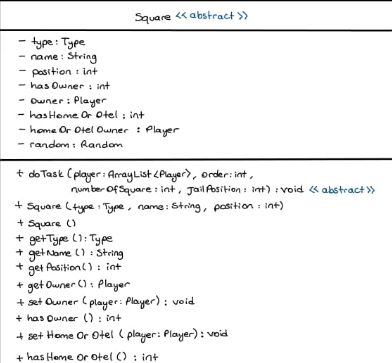 Square <<abstract>>
- type: Type
- name: String
- position: int
- hasOwner: int
- owner: Player
- hasHomeOrOtel: int
- homeOrOtelOwner: Player
- random: Random
+ doTask (player: ArrayList<Player>, order: int,
numberOfSquare: int, jailPosition: int): void <<abstract>>
+ Square (type: Type, name: String, position: int)
+ Square ()
+ getType (): Type
+ getName (): String
+ getPosition(): int
+ getOwner(): Player
+ setOwner (player: Player): void
+ hasOwner (): int
+ setHomeOrOtel (player: Player): void
+ hasHomeOrOtel (): int